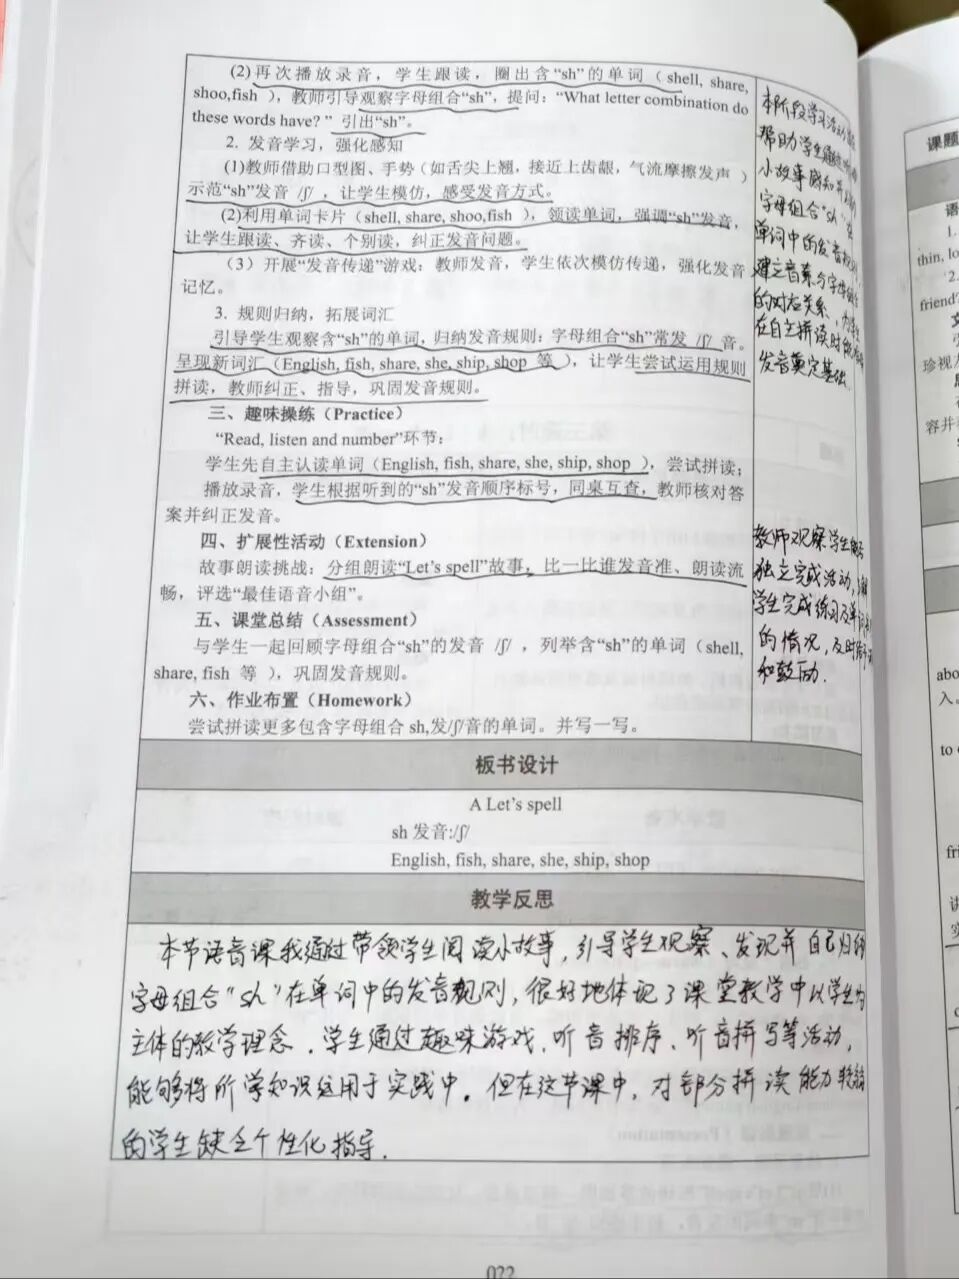 (2)再次播放录音，学生跟读，圈出含“sh”的单词（shell, share,
shoo,fish ），教师引导观察字母组合“sh”，提问：“What letter combination do
these words have? ” 引出“sh”。
2. 发音学习，强化感知
(1)教师借助口型图、手势（如舌尖上翘，接近上齿龈，气流摩擦发声 ）
示范“sh”发音 /ʃ/ ，让学生模仿，感受发音方式。
(2)利用单词卡片（shell, share, shoo,fish ），领读单词，强调“sh”发音，
让学生跟读、齐读、个别读，纠正发音问题。
（3）开展“发音传递”游戏：教师发音，学生依次模仿传递，强化发音
记忆。
3. 规则归纳，拓展词汇
引导学生观察含“sh”的单词，归纳发音规则：字母组合“sh”常发 /ʃ/ 音。
呈现新词汇（English, fish, share, she, ship, shop 等 ），让学生尝试运用规则
拼读，教师纠正、指导，巩固发音规则。
三、趣味操练（Practice）
“Read, listen and number”环节：
学生先自主认读单词（English, fish, share, she, ship, shop ），尝试拼读；
播放录音，学生根据听到的“sh”发音顺序标号，同桌互查，教师核对答
案并纠正发音。
四、扩展性活动（Extension）
故事朗读挑战：分组朗读“Let’s spell”故事，比一比谁发音准、朗读流
畅，评选“最佳语音小组”。
五、课堂总结（Assessment）
与学生一起回顾字母组合“sh”的发音 /ʃ/ ，列举含“sh”的单词（shell,
share, fish 等 ），巩固发音规则。
六、作业布置（Homework）
尝试拼读更多包含字母组合 sh,发/ʃ/音的单词。并写一写。
本阶段学习活动
帮助学生通过
小故事感知并
字母组合“sh”在
单词中的发音规则，
建立音素与字母
的对应关系，为学生
在自主拼读时
发音奠定基础.
教师观察学生能否
独立完成活动，
学生完成练习及单词
的情况，及时给予
和鼓励.
板书设计
A Let’s spell
sh 发音:/ʃ/
English, fish, share, she, ship, shop
教学反思
本节语音课我通过带领学生阅读小故事，引导学生观察、发现并自己归纳
字母组合“sh”在单词中的发音规则，很好地体现了课堂教学中以学生为
主体的教学理念．学生通过趣味游戏、听音排序、听音拼写等活动，
能够将所学知识运用于实践中．但在这节课中，对部分拼读能力较弱
的学生缺乏个性化指导．
022
课题
语
1.
thin, lo
2.
friend?
文
珍视
思
容并
abo
入。
to
fri
讲
实